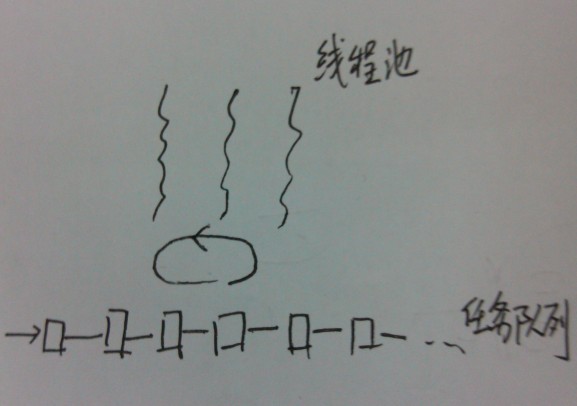 线程池
任务队列